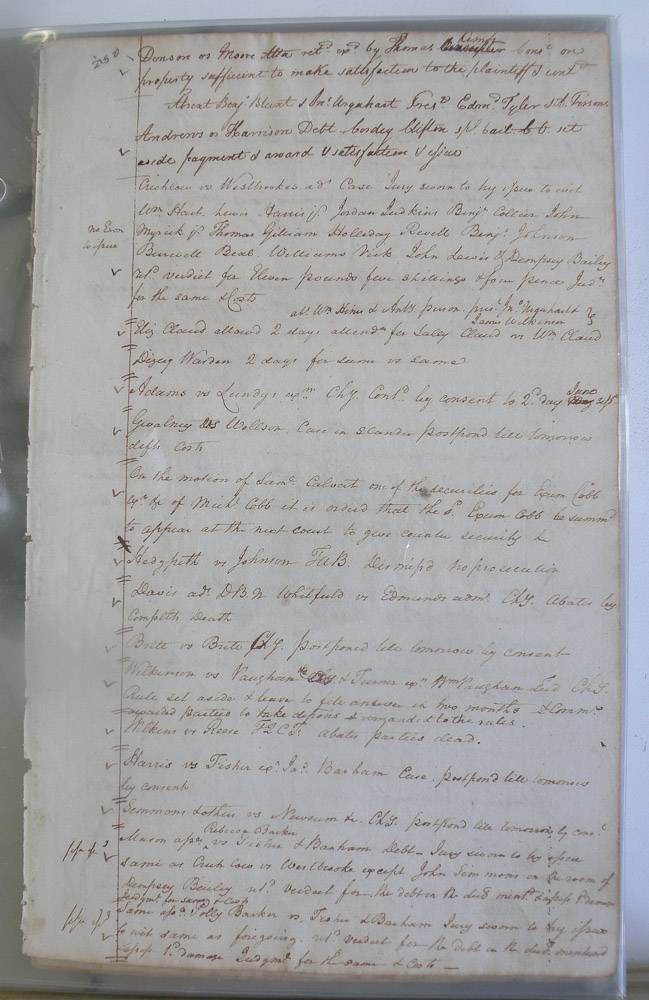 Donson vs Moore Atta retd exd by Thomas Kemp Consr on
property sufficient to make satisfaction to the plaintiffs
Absent Benja Blunt & Jno Urquhart Prest Edmd Tyler
Andrews vs Harrison Debt Cordey Clifton set
aside payment & award & satisfaction & issue
Crichlow vs Westbrookes adr Case Jury sworn to try issue to wit
Wm Hart Lewis Harris jr Jordan Judkins Benja Collier John
no Exon
to issue
Myrick jr Thomas Gilliam Holleday Revell Benja Johnson
Burwell Beal Williams Vick John Lewis & Dempsey Bailey
retd verdict for Eleven pounds five shillings & four pence Judt
for the same & Costs
abt Wm Hines & Anty person prest Jno Urquhart &
James Wilkinson
Eliz Claud allowed 2 days attenda for Sally Claud vs Wm Claud
Warden 2 days for same vs same
Adams vs Lundys exr ChY Contd by consent to 2d day June
Gwalney vs Wellson Case in Slander postpond till tomorrow
defts Costs
On the motion of Saml Calvert one of the securities for Exum Cobb
exr &c of Michl Cobb it is orderd that the sd Exum Cobb be summd
to appear at the next court to give counter security &c
Hedgpeth vs Johnson TAB. Dismissd no prosecution
Davis adr D.B.N Whitfield vs Edmunds admr ChY. Abates by
complts Death
Britt vs Britt ChY. postponed till tomorrow by consent
Wilkinson vs Vaughan & Turner exr Wm Vaughan decd ChY
Rule set aside & leave to file answer in two months & Comms
awarded parties to take deposns & remanded to the rules.
Wilkins vs Reese abates parties dead.
Harris vs Fisher exr Jas Barham Case. postpond till tomorrow
by consent
Semmons & others vs Newsum &c. ChY postpond till tomorrow by const
Rebecca Barker
Mason vs Fisher & Barham Debt Jury sworn to try issue
same as Crichlow vs Westbrooke except John Simmons in the room of
Dempsey Bailey retd verdict for the debt in the decl mentd & assess 1d damage
Judgmt for same & Costs
Same Polly Barker vs. Fisher & Barham Jury sworn to try issue
to wit same as foregoing retd verdict for the debt in the decl mentioned
assess 1d damage Judgmt for the same & Costs